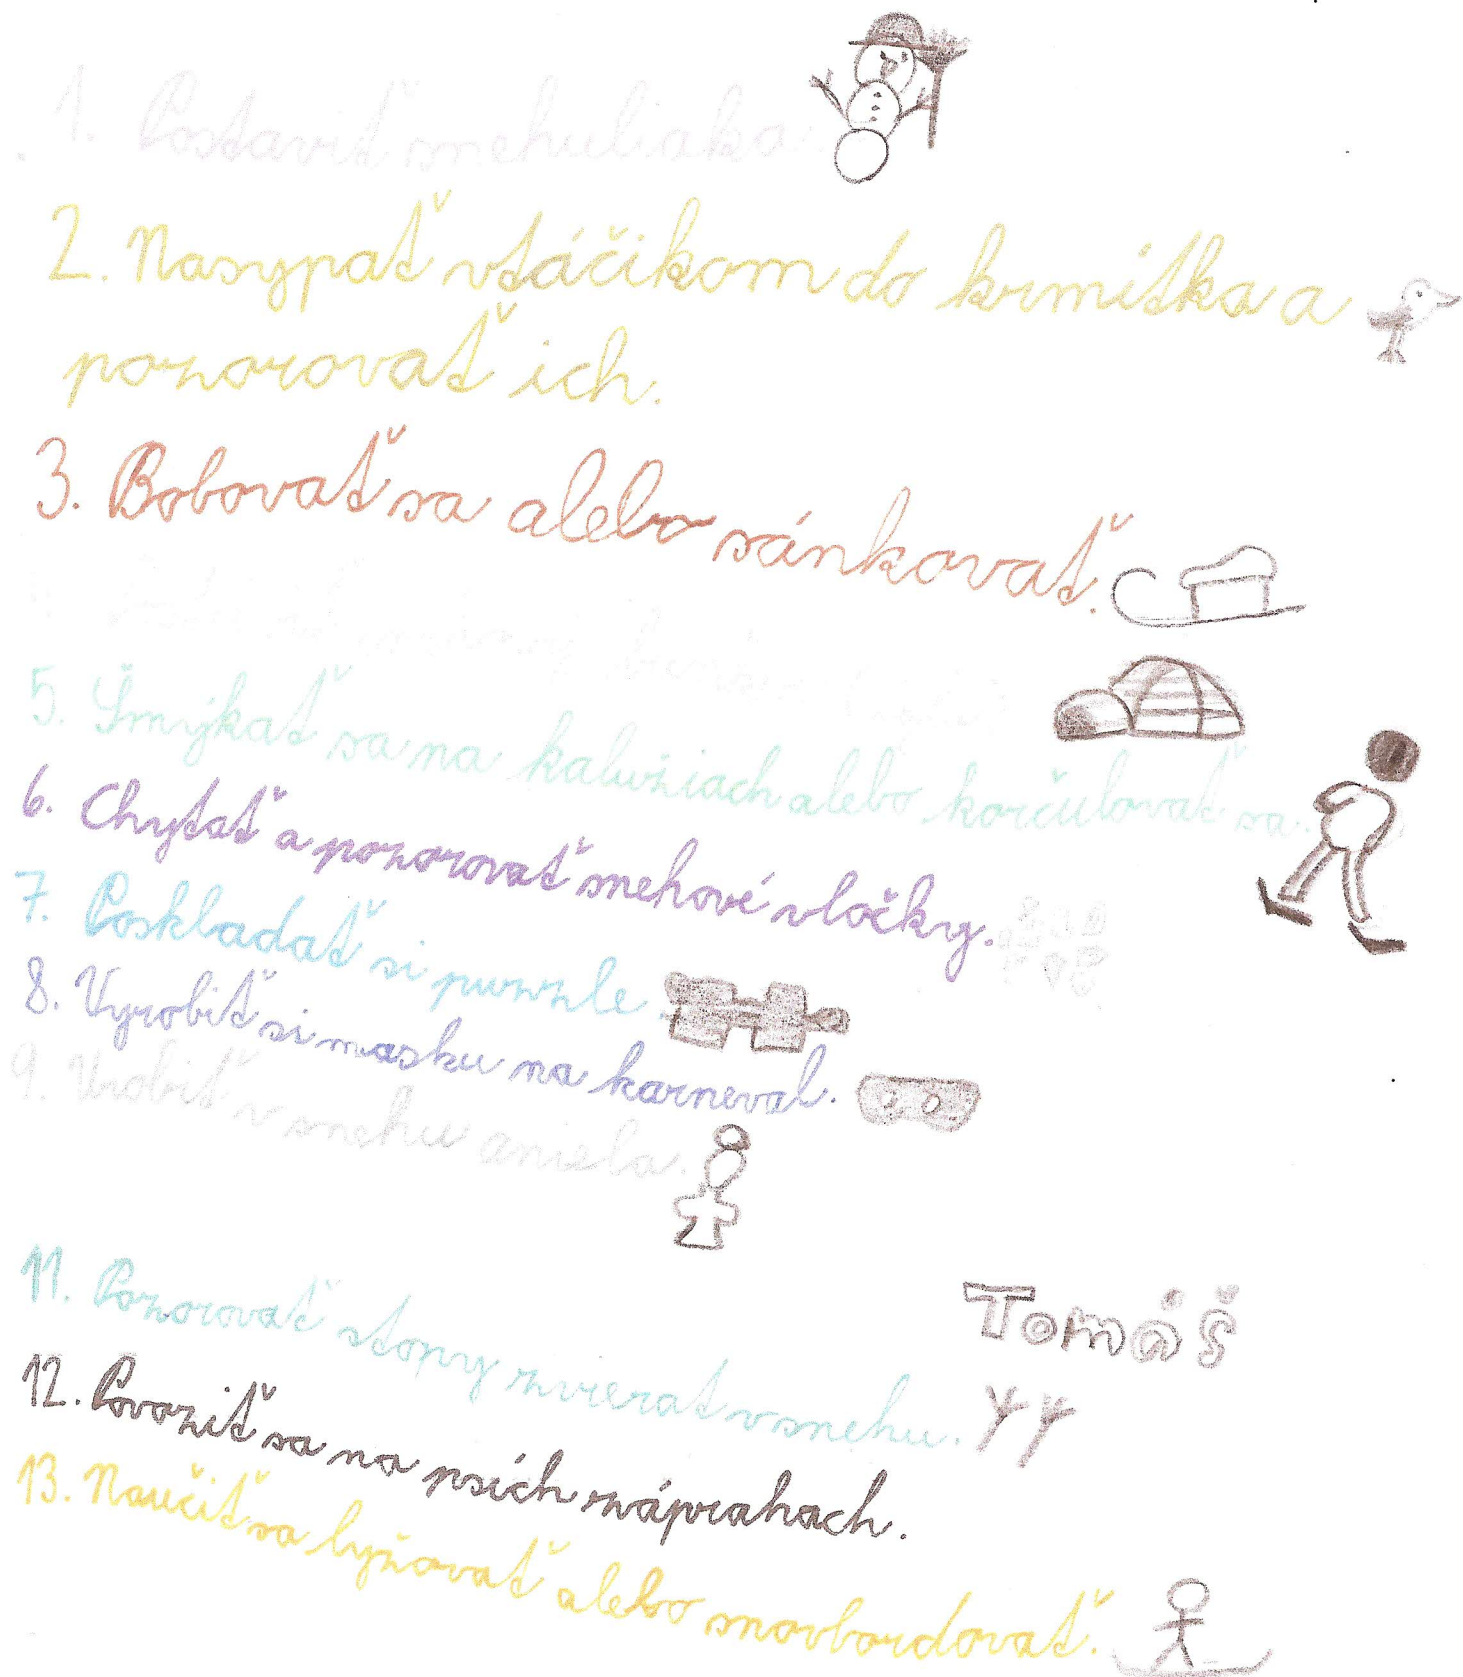 1. Postaviť snehuliaka
2. Nasypať vtáčikom do krmítka a
pozorovať ich.
3. Bobovať sa alebo sánkovať.
5. Šmýkať sa na kalužiach alebo korčulovať sa.
6. Chytať a pozorovať snehové vločky.
7. Poskladať si puzzle.
8. Vyrobiť si masku na karneval.
9. Urobiť v snehu aniela.
Tomáš
11. Pozorovať stopy zvierat v snehu.
12. Povoziť sa na psích záprahach.
13. Naučiť sa lyžovať alebo snovbordovať.